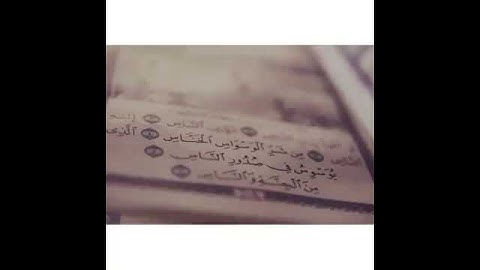 مَلِكِ النَّاسِ إِلَٰهِ
النَّاسِ مِن شَرِّ الْوَسْوَاسِ الْخَنَّاسِ الَّذِى
يُوَسْوِسُ فِى صُدُورِ النَّاسِ
مِنَ الْجِنَّةِ وَالنَّاسِ